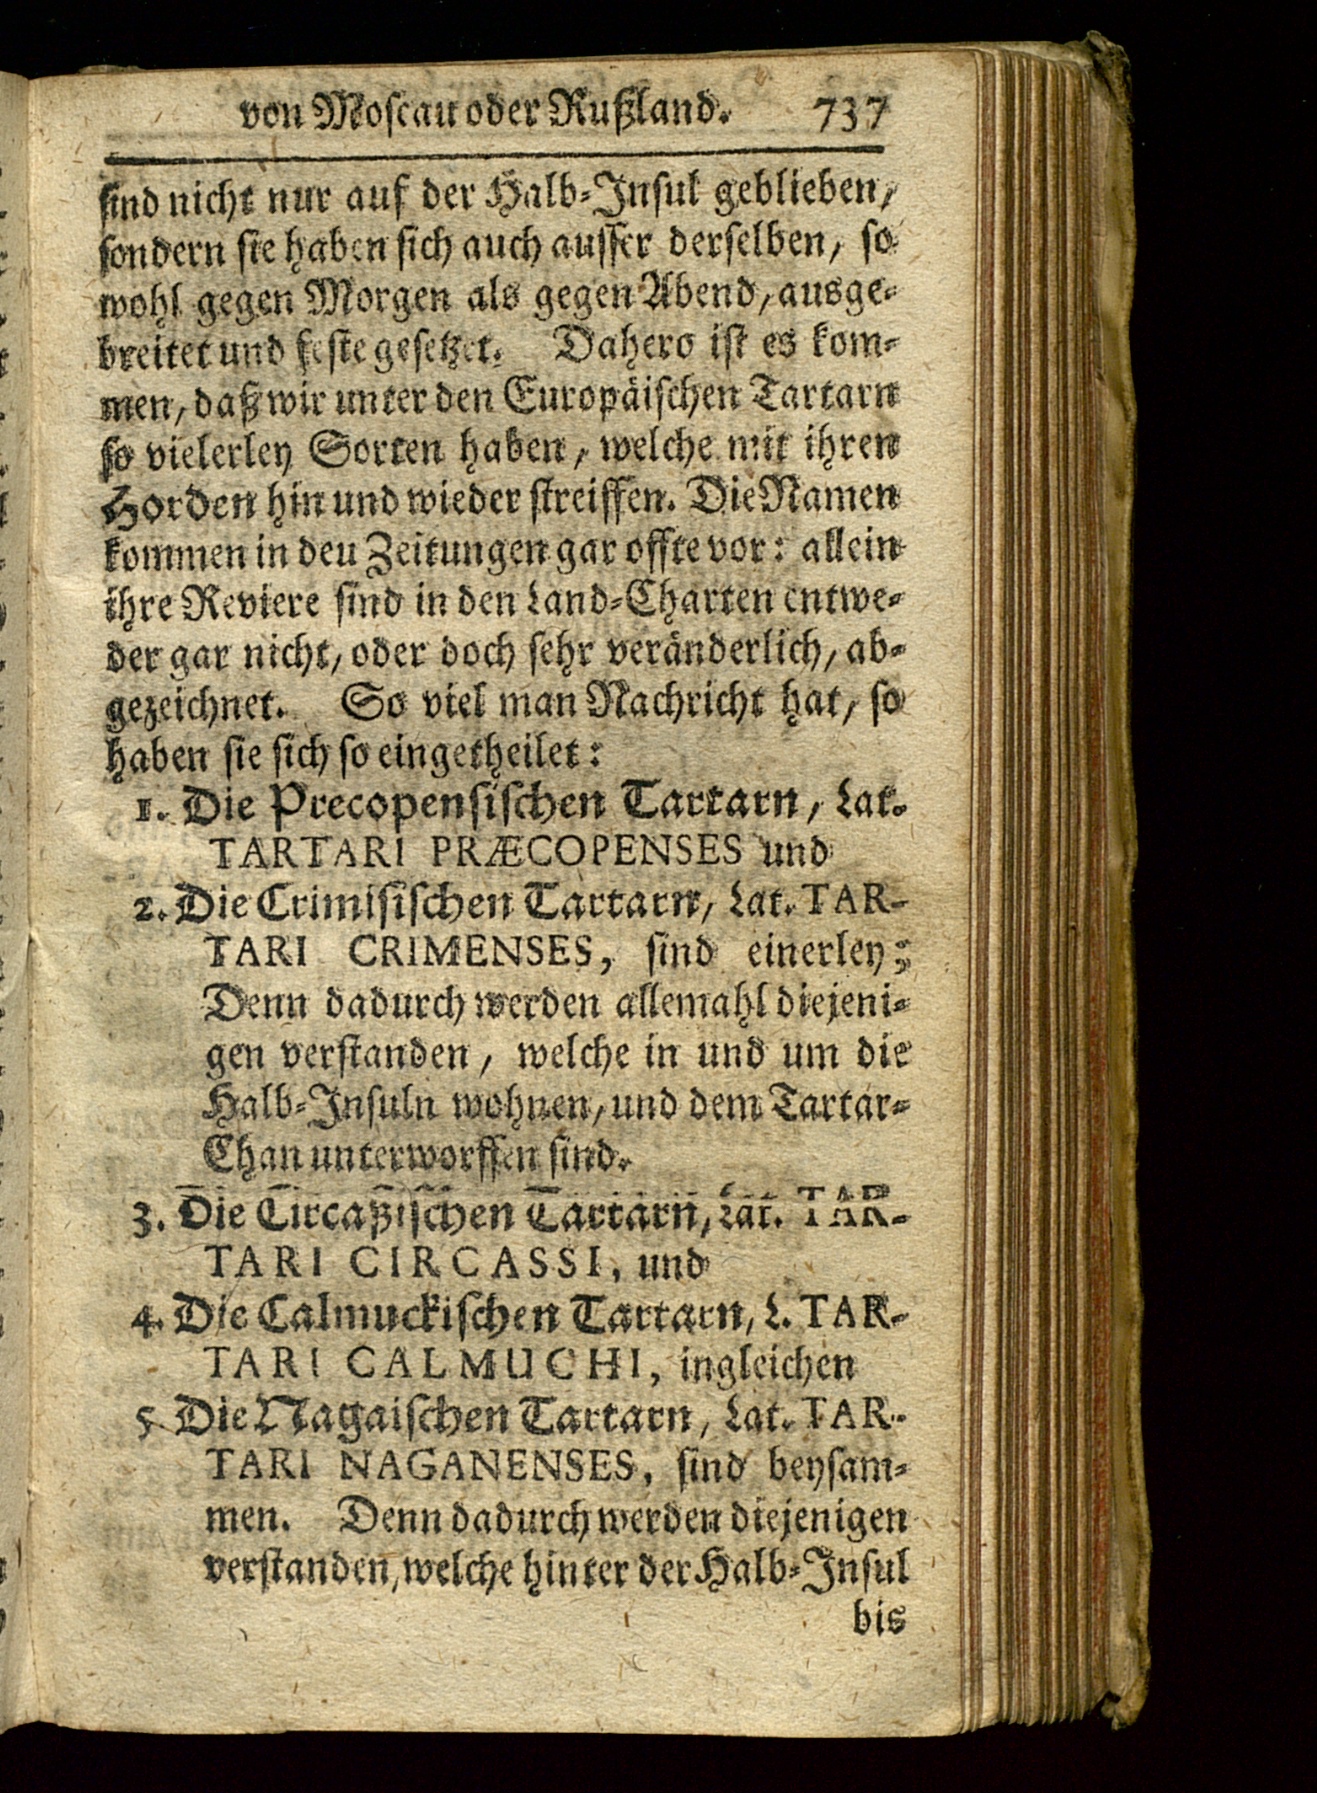 von Moscau oder Rußland. 737
sind nicht nur auf der Halb-Insul geblieben,
sondern sie haben sich auch ausser derselben, so
wohl gegen Morgen als gegen Abend, ausge-
breitet und feste gesetzet. Dahero ist es kom-
men, daß wir unter den Europäischen Tartarn
so vielerley Sorten haben, welche mit ihren
Horden hin und wieder streiffen. Die Namen
kommen in deu Zeitungen gar offte vor: allein
ihre Reviere sind in den Land-Charten entwe-
der gar nicht, oder doch sehr veränderlich, ab-
gezeichnet. So viel man Nachricht hat, so
haben sie sich so eingetheilet:
1. Die Precopensischen Tartarn, Lat.
TARTARI PRÆCOPENSES und
2. Die Crimisischen Tartarn, Lat. TAR-
TARI CRIMENSES, sind einerley;
Denn dadurch werden allemahl diejeni-
gen verstanden, welche in und um die
Halb-Insuln wohnen, und dem Tartar-
Chan unterworffen sind.
3. Die Circaßischen Tartarn, Lat. TAR-
TARI CIRCASSI, und
4. Die Calmuckischen Tartarn, L. TAR-
TARI CALMUCHI, ingleichen
5. Die Nagaischen Tartarn, Lat. TAR-
TARI NAGANENSES, sind beysam-
men. Denn dadurch werden diejenigen
verstanden, welche hinter der Halb-Insul
bis